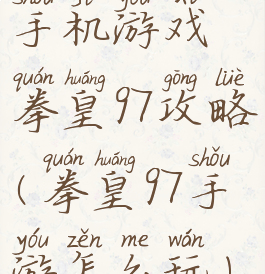 shǒu jī yóu xì
手机游戏
quán huáng gōng lüè
拳皇97攻略
quán huáng shǒu
(拳皇97手
yóu zěn me wán
游怎么玩)